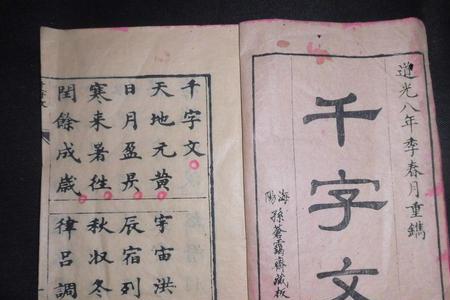 道光八年季春月重鐫
千字文
海陽孫蒼靄齋藏板
千字文
天地元黃宇宙洪
日月盈昃辰宿列
寒来暑徃秋収冬
閏餘成歲律呂調